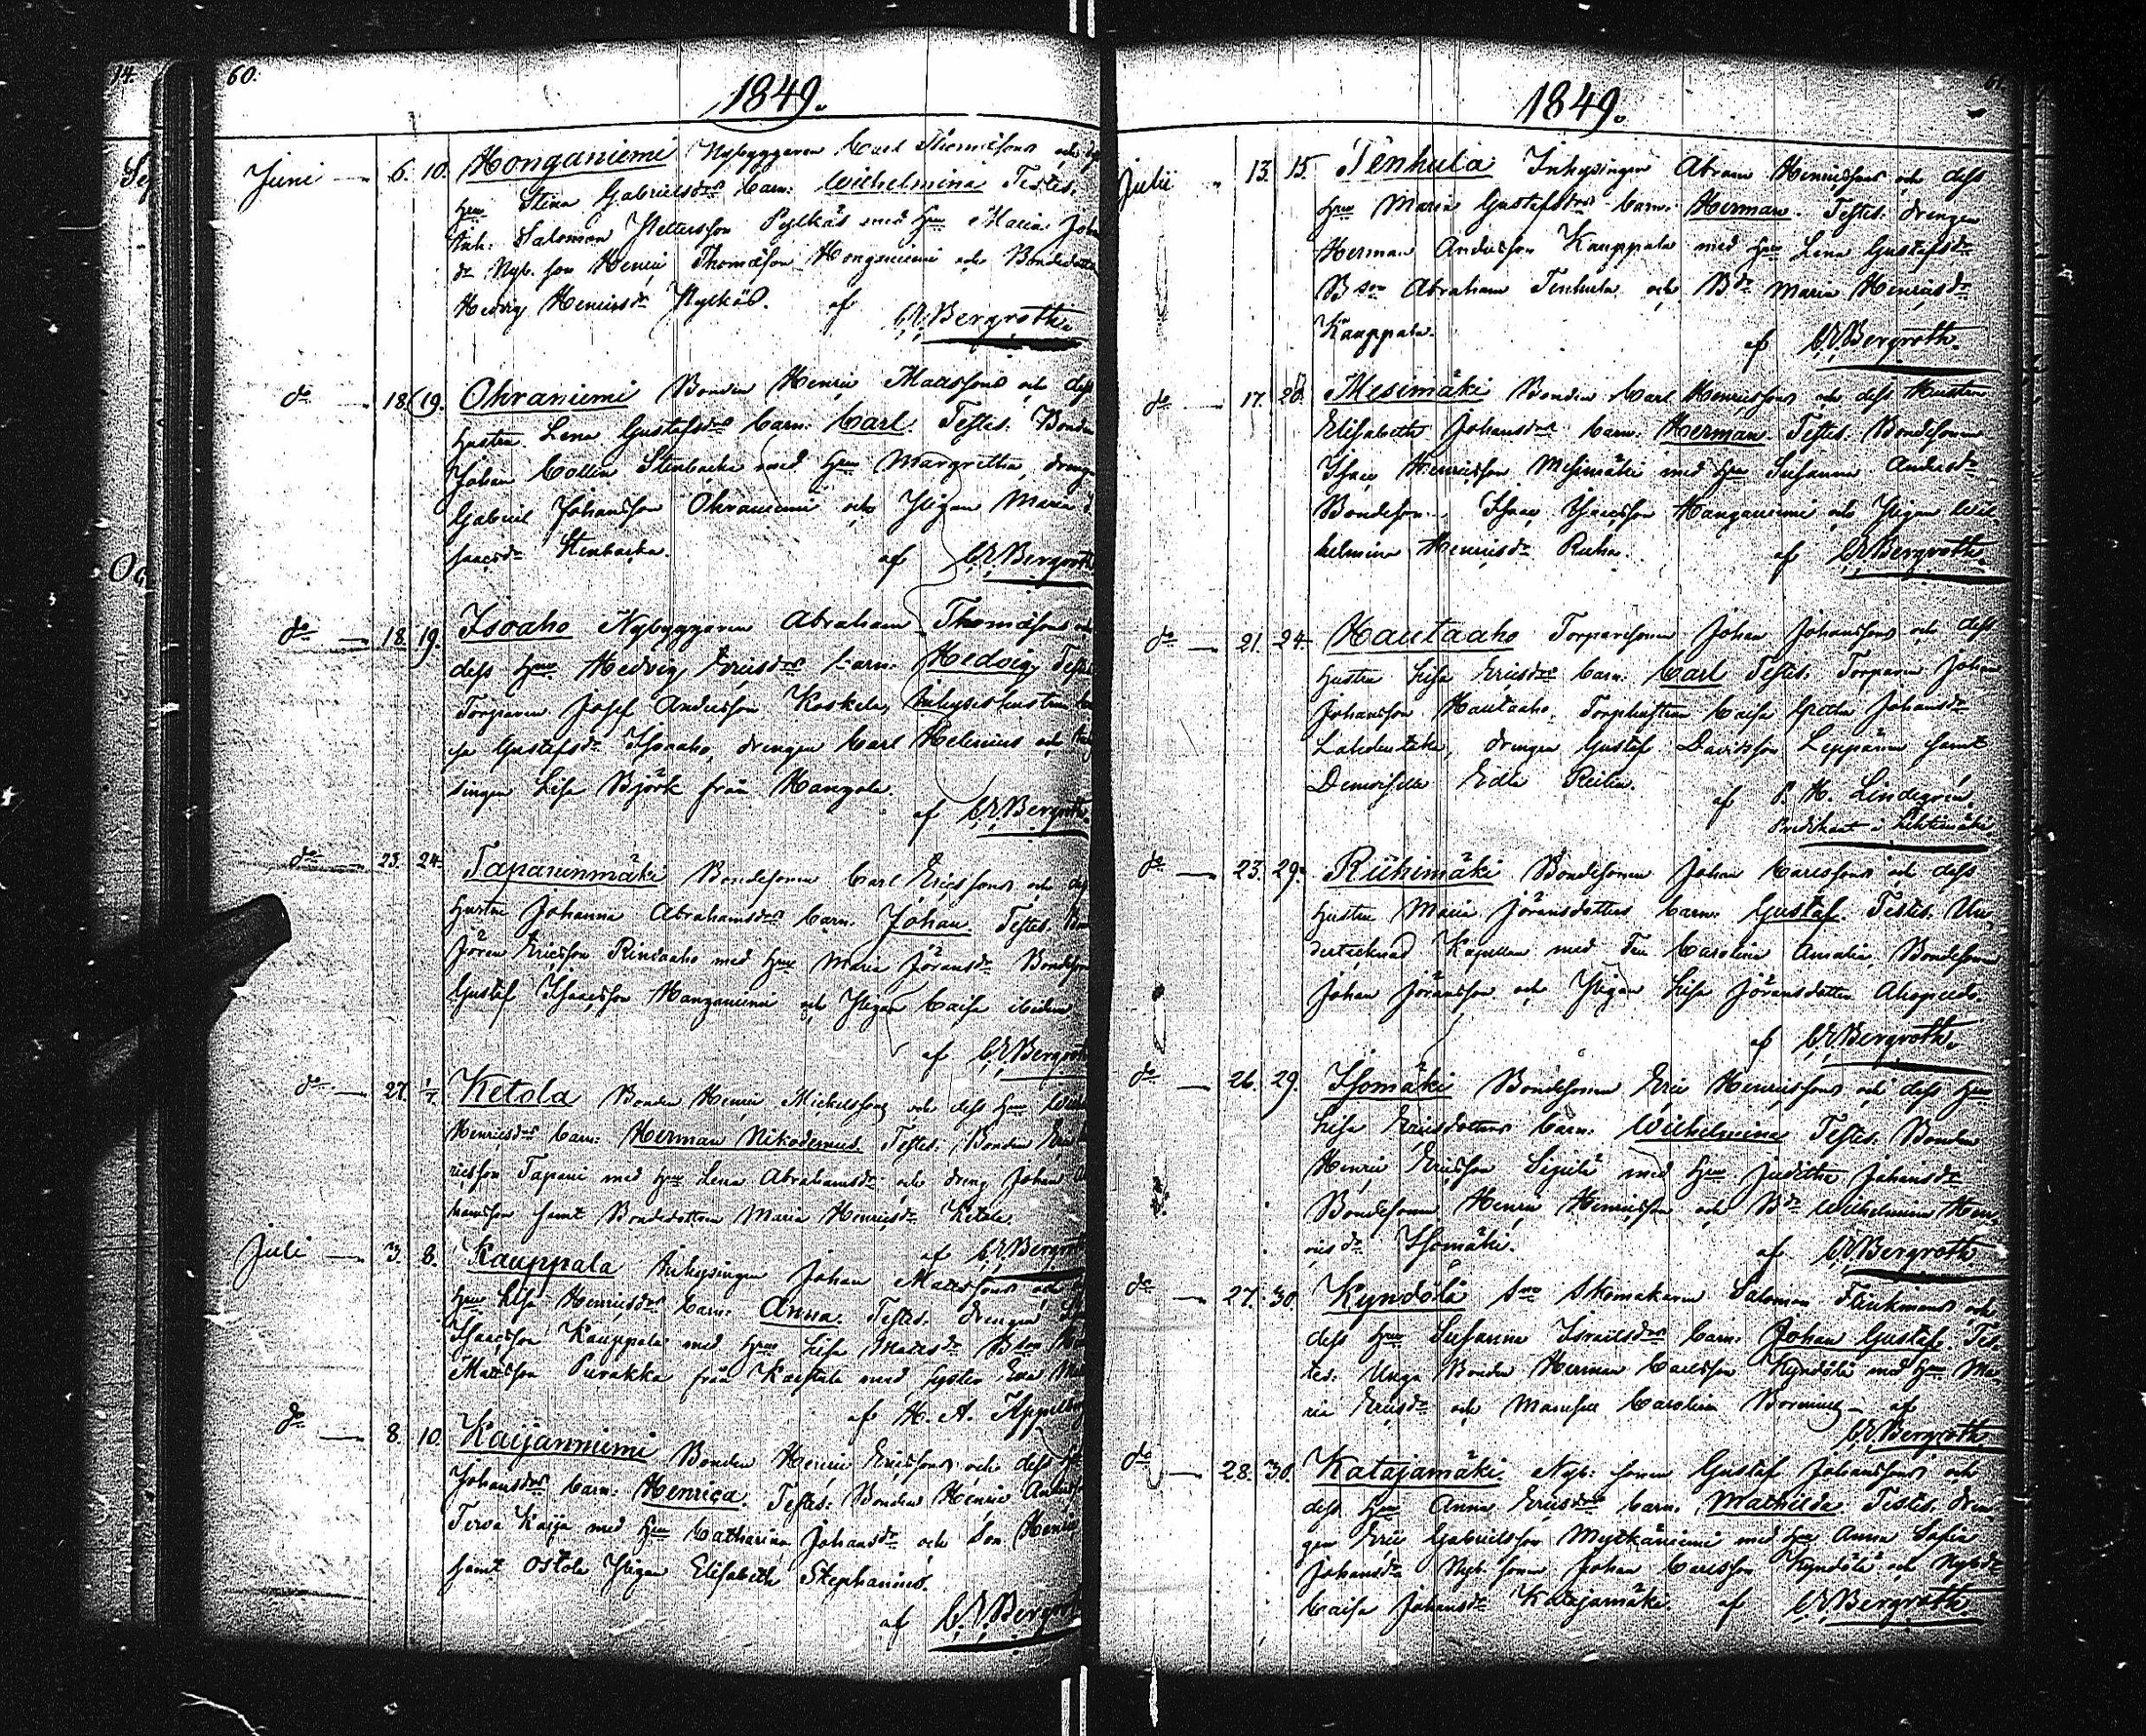 14.
60.
1849.
Juni 6. 10. Honganiemi Nybyggaren Carl Thomæsons och
Hru Stina Gabrielsdrs barn: Wilhelmina Testes.
Inh: Salomon Pettersson Pylkäs med Hru Maria Joh
dr Nyb. son Henric Thomæson Honganiemi och Bondedottr
Hedvig Henricsdr Pylkäs. af
C.E. Bergroth.
do 18. 19. Ohraniemi Bonden Henric Matssons och dess
hustru Lena Gustafsdrs barn: Carl. Testes. Bonden
Johan Collin Stenbacka med Hru Margretha, dreng
Gabriel Johansson Ohraniemi och Pigan Maria
saacsdr Stenbacka. af C.E. Bergroth
do 18. 19. Isoaho Nybyggaren Abraham Thomæsons
dess Hru Hedvig Ericsdrs barn: Hedvig Testes
Torparen Josef Andersson Koskela, Inhyseshustrun
sa Gustafsdr Isoaho, drengen Carl Helenius och
singen Lisa Björk från Kangola.
af C.E. Bergroth.
do 23. 24. Tapaninmäki Bondesonen Carl Ericssons och
hustru Johanna Abrahamsdrs barn: Johan. Testes.
Jöran Ericsson Rindaaho med Hru Maria Jöransdr Bondeson
Gustaf Isaacsson Kanganiemi och Pigan Caisa ibidem
af C.E. Bergroth
do 27. 1/7. Ketola Bonden Henric Michelssons och dess Hru
Henricsdrs barn: Herman Nikodemus. Testes: Bonden Eric
ricsson Tapani med Hru Lena Abrahamsdr och dreng Johan
hansson samt Bondedottren Maria Henricsdr Ketola.
af C.E. Bergroth
Juli 3. 8. Kauppala Inhysingen Johan Matssons och
Hru Lisa Henricsdrs barn: Anna. Testes. drengen
Isaacsson Kauppala med Hru Lisa Matsdr Bson
Matsson Purakka från Karstula med syster Eva
af H. A. Appelberg
do 8. 10. Kaijanniemi Bonden Henric Ericssons och dess
Johansdrs barn: Henrica. Testes: Bonden Henric Anders
Terva Kaija med Hru Catharina Johansdr och Son Henric
samt Ostola Pigan Elisabeth Stephanius.
af C.E. Bergroth
1849.
Julii 13. 15. Tenhula Inhysingen Abram Henricssons och dess
Hru Maria Gustafsdrs barn: Herman. Testes. drengen
Herman Andersson Kauppala med Hru Lena Gustafsdr
Bson Abraham Tenhula och Bdr Maria Henricsdr
Kauppala.
af C.E. Bergroth.
do 17. Mesimäki Bonden Carl Henricssons och dess Hustru
Elisabeth Johansdrs barn: Herman. Testes. Bondesonen
Isaac Henricsson Mesimäki med Hru Susanna Andersdr
Bondeson. Isaac Isacsson Kanganiemi och Pigan Wil-
helmina Henricsdr Ruha. af C.E. Bergroth.
do 21. 24. Hautaaho Torparesonen Johan Johanssons och dess
hustru Lisa Ericsdrs barn: Carl Testes. Torparen Johan
Johansson Hautaaho, Torphustrun Caisa Gretha Johansdr
drengen Gustaf Davidsson Leppänen samt
Demoiselle Edla Reilin.
af P. H. Lindegren.
Predikant i Lehtimäki.
do 23. 29. Riihimäki Bondesonen Johan Carlssons och dess
hustru Maria Jöransdotters barn: Gustaf. Testes. Un-
dertecknad Kapellan med Fru Carolina Amalia, Bondesonen
Johan Jöransson och Pigan Lisa Jöransdotter Ahopelto.
af C.E. Bergroth.
do 26. 29. Isomäki Bondesonen Eric Henricssons och dess Hru
Lisa Ericsdotters barn: Wilhelmina Testes. Bonden
Henric Ericsson Sipilä med Hru Juditha Johansdr
Bondesonen Henric Henricsson och Bdr Wilhelmina Hen-
ricsdr Isomäki. af C.E. Bergroth
do 27. 30. Kyndölä Sno Skomakaren Salomon Flinkmans och
dess Hru Susanna Israelsdrs barn: Johan Gustaf. Tes-
tes: Unga Bonden Herman Carlsson Kyndölä med Hru Ma-
ria Ericsdr och Mamsell Carolina Borenius af
C.E. Bergroth
do 28. 30. Katajamäki Nyb: sonen Gustaf Johanssons och
dess Hru Anna Ericsdrs barn: Mathilda Testes. dren
gen Eric Gabrielsson Mytkäniemi med Hru Anna Sofia
Johansdr Nyb. sonen Johan Carlsson Kyndölä och Nybdr
Caisa Johansdr Katajamäki. af C.E. Bergroth